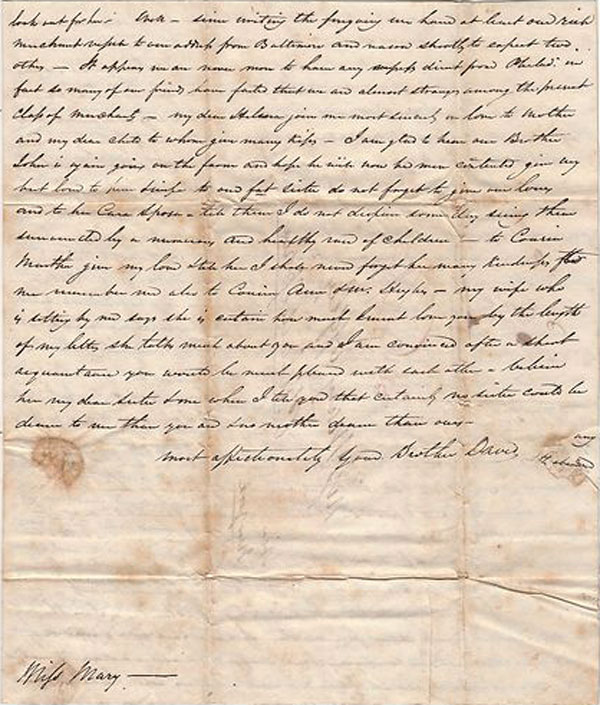 look out for her - since writing the foregoing we have at least one rich
merchant vessel to our address from Baltimore and reason shortly to expect two
others — It appears we are never more to have any vessels direct from Philad. in
fact so many of our friends have failed that we are almost strangers among the present
class of merchants — my dear join me most sincerely in love to Mother
and my dear to whom give many kisses — I am glad to hear our Brother
John is again going on the farm and hope he will now be more contented give my
best love to to our fat sister do not forget to give our love
and to her Cara Sposa - tell them I do not despair some day seeing them
surrounded by a numerous and healthy race of children — to Cousin
Martha give my love & tell her I shall never forget her many kindnesses to
me remember me also to Cousin Ann & Mr. Hughes — my wife who
is sitting by me says she is certain how much I must love you by the length
of my letter she talks much about you and I am convinced after a short
acquaintance you would be much pleased with each other - believe
me my dear sister when I tell you that certainly no sister could be
dearer to me than you and no mother dearer than ours -
most affectionately Your Brother David
any
Miss Mary —